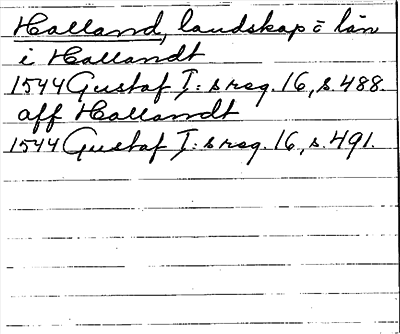 Halland, landskap o län
i Hallandt
1544 Gustaf I:s reg. 16, s. 488.
aff Hallandt
1544 Gustaf I:s reg. 16, s. 491.